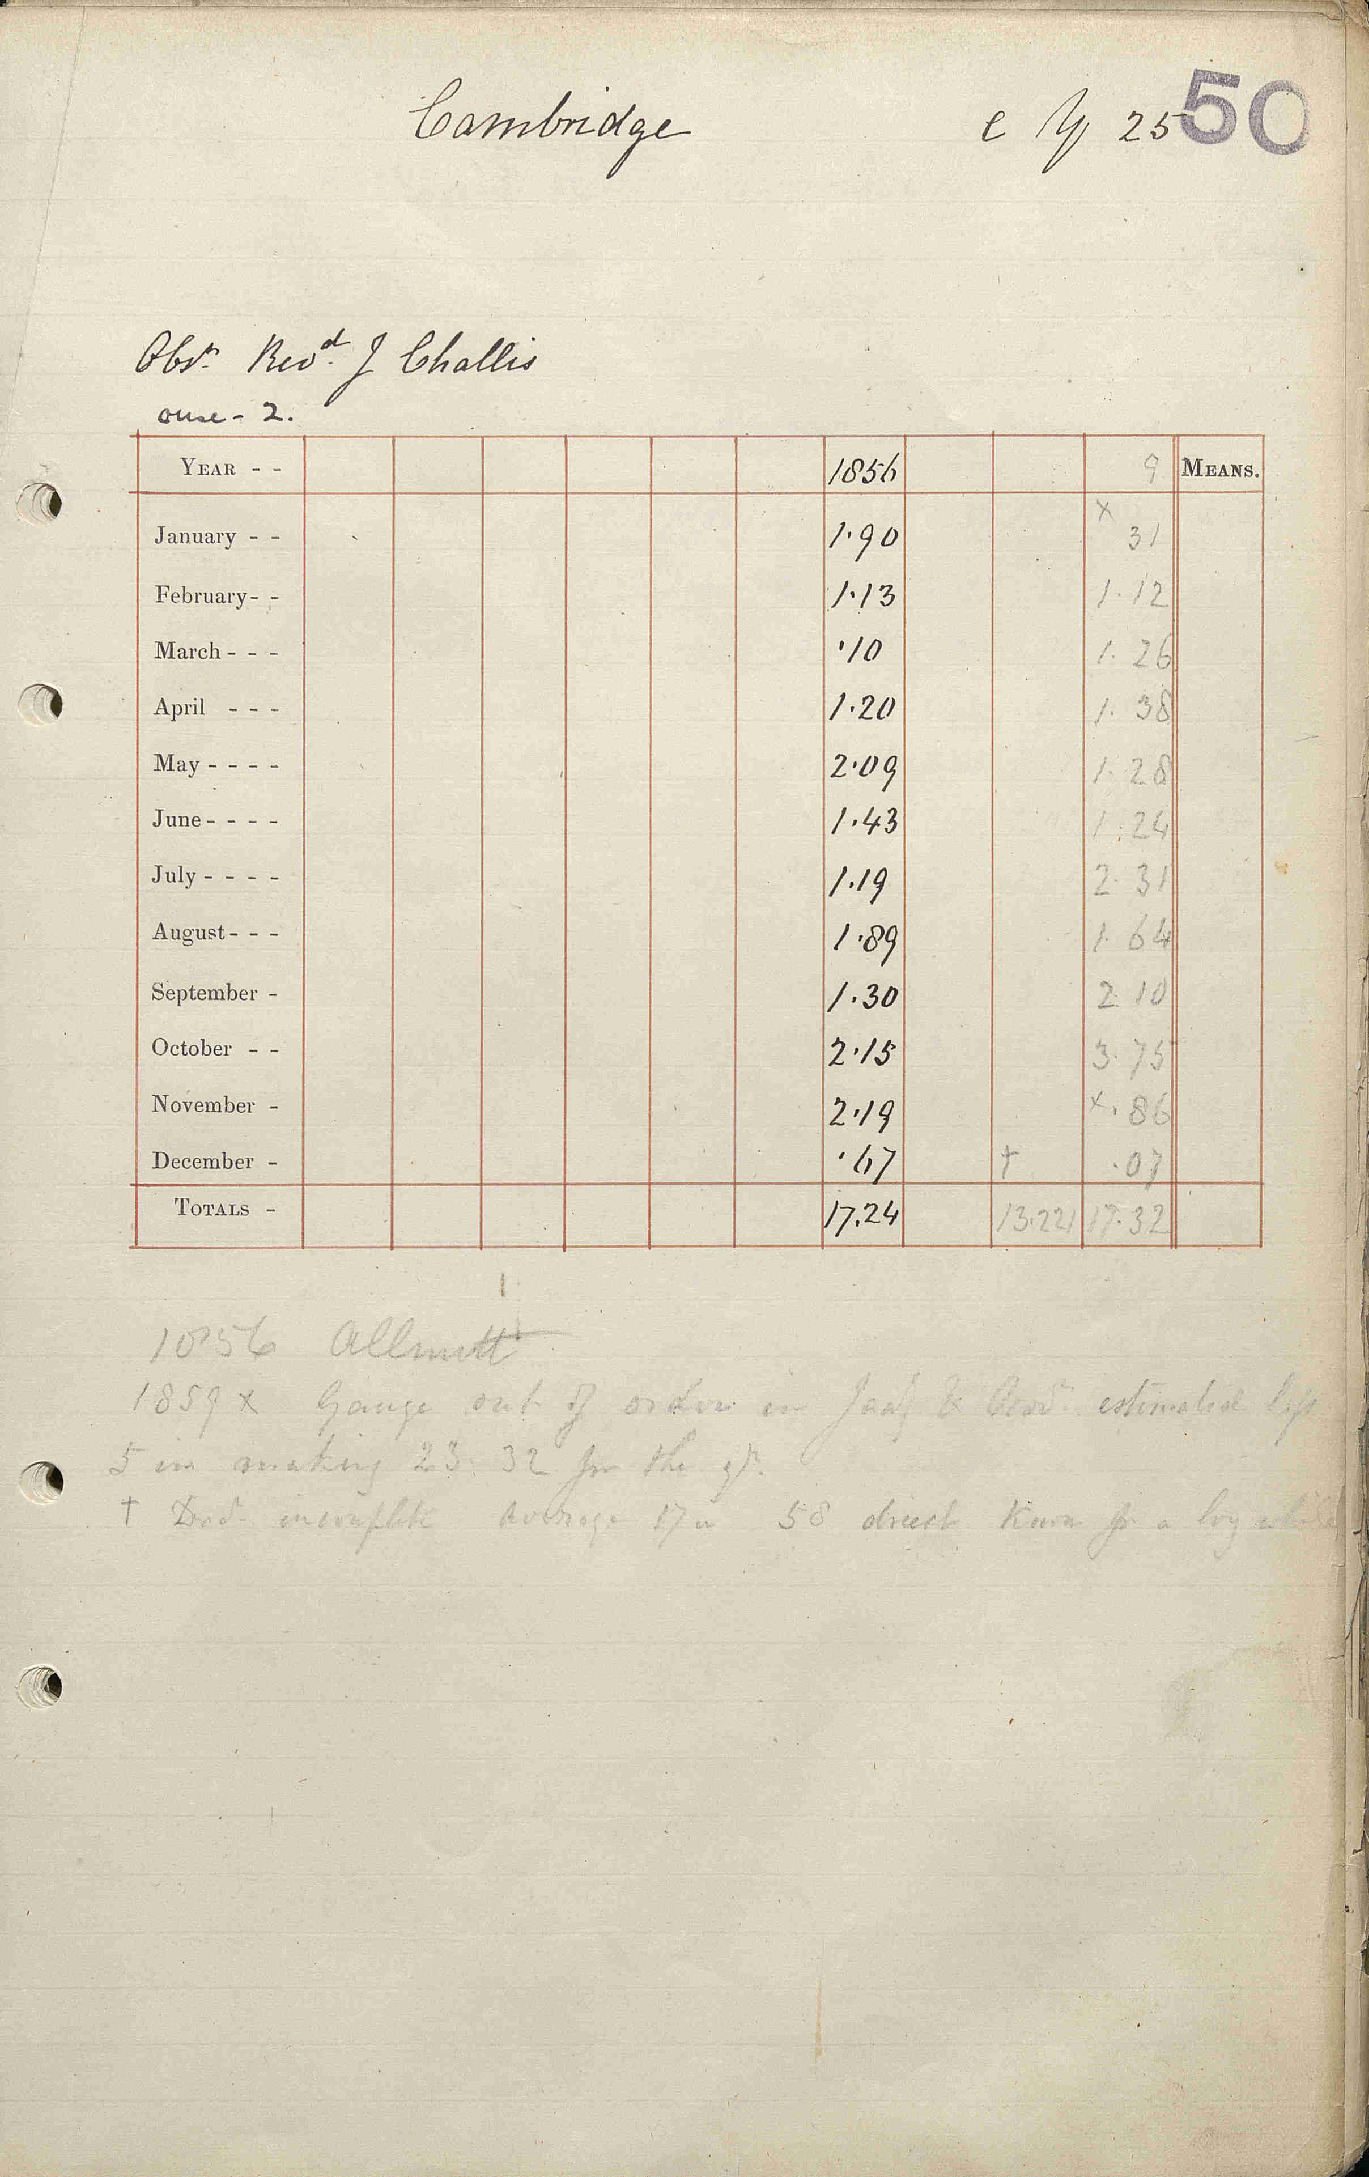 Cambridge
25
50
Obsr. Revd. J Challis
ouse - 2.
YEAR - - 1856 9 MEANS.
January - - 1.90 x 31
February - - 1.13 1.12
March - - - .10 1.26
April - - - 1.20 1.38
May - - - - 2.09 1.28
June - - - - 1.43 1.24
July - - - - 1.19 2.31
August - - - 1.89 1.64
September - 1.30 2.10
October - - 2.15 3.75
November - 2.19 x .86
December - .67 † .07
TOTALS - 17.24 13.221 17.32
1856 Allnutt
1859 x Gauge out of order in & estimated loss
5 in making 23.32 for the yr.
† Decr. incomplete average 17 58 direct for a long while